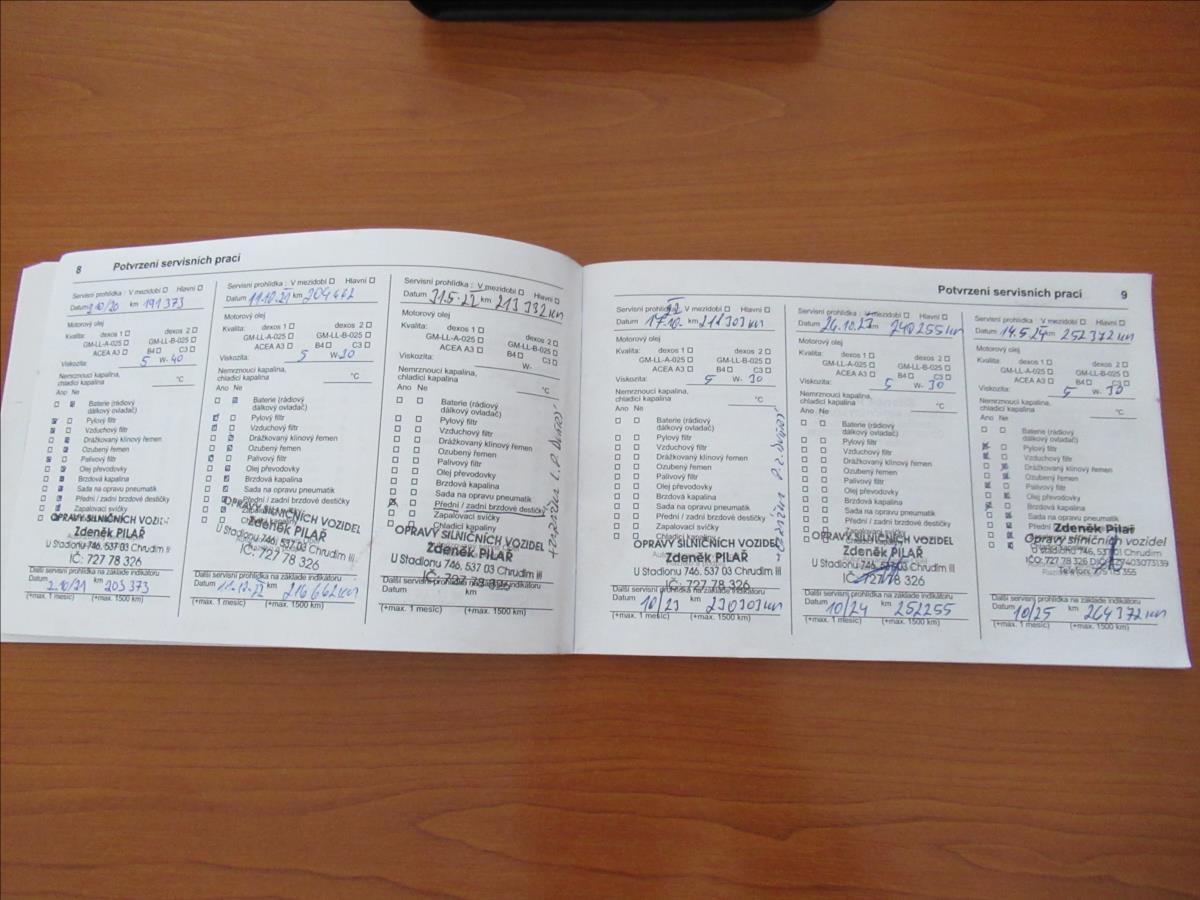 8 Potvrzení servisních prací
Servisní prohlídka : V mezidobí Hlavní
Datum 2.10/20 km 191 373
Motorový olej
Kvalita: dexos 1 dexos 2
GM-LL-A-025 GM-LL-B-025
ACEA A3 B4 C3
Viskozita: 5 W- 40
Nemrznoucí kapalina,
chladicí kapalina °C
Ano Ne
Baterie (rádiový
dálkový ovladač)
Pylový filtr
Vzduchový filtr
Drážkovaný klínový řemen
Ozubený řemen
Palivový filtr
Olej převodovky
Brzdová kapalina
Sada na opravu pneumatik
Přední / zadní brzdové destičky
Zapalovací svíčky
OPRAVY SILNIČNÍCH VOZIDEL
Zdeněk PILAŘ
U Stadionu 746, 537 03 Chrudim
IČ: 727 78 326
Další servisní prohlídka na základe indikátoru
Datum 2.10/21 km 203 373
(+max. 1 mesíc) (+max. 1500 km)
Servisní prohlídka : V mezidobí Hlavní
Datum 11.10.21 km 204 662
Motorový olej
Kvalita: dexos 1 dexos 2
GM-LL-A-025 GM-LL-B-025
ACEA A3 B4 C3
Viskozita: 5 W- 30
Nemrznoucí kapalina,
chladicí kapalina °C
Ano Ne
Baterie (rádiový
dálkový ovladač)
Pylový filtr
Vzduchový filtr
Drážkovaný klínový řemen
Ozubený řemen
Palivový filtr
Olej převodovky
Brzdová kapalina
Sada na opravu pneumatik
Přední / zadní brzdové destičky
OPRAVY SILNIČNÍCH VOZIDEL
Zdeněk PILAŘ
U Stadionu 746, 537 03 Chrudim III
IČ: 727 78 326
Další servisní prohlídka na základe indikátoru
Datum 11.10.22 km 216 662 km
(+max. 1 mesíc) (+max. 1500 km)
Servisní prohlídka : V mezidobí Hlavní
Datum 31.5.22 km 213 332 km
Motorový olej
Kvalita: dexos 1 dexos 2
GM-LL-A-025 GM-LL-B-025
ACEA A3 B4 C3
Viskozita: W-
Nemrznoucí kapalina,
chladicí kapalina °C
Ano Ne
Baterie (rádiový
dálkový ovladač)
Pylový filtr
Vzduchový filtr
Drážkovaný klínový řemen
Ozubený řemen
Palivový filtr
Olej převodovky
Brzdová kapalina
Sada na opravu pneumatik
Přední / zadní brzdové destičky
Zapalovací svíčky
Chladicí kapalina
OPRAVY SILNIČNÍCH VOZIDEL
Zdeněk PILAŘ
U Stadionu 746, 537 03 Chrudim III
IČ: 727 78 326
Další servisní prohlídka na základe indikátoru
Datum km
(+max. 1 mesíc) (+max. 1500 km)
Potvrzení servisních prací 9
Servisní prohlídka : V mezidobí Hlavní
Datum 17.10. km
Motorový olej
Kvalita: dexos 1 dexos 2
GM-LL-A-025 GM-LL-B-025
ACEA A3 B4 C3
Viskozita: 5 W- 30
Nemrznoucí kapalina,
chladicí kapalina °C
Ano Ne
Baterie (rádiový
dálkový ovladač)
Pylový filtr
Vzduchový filtr
Drážkovaný klínový řemen
Ozubený řemen
Palivový filtr
Olej převodovky
Brzdová kapalina
Sada na opravu pneumatik
Přední / zadní brzdové destičky
Zapalovací svíčky
Chladicí kapalina
OPRAVY SILNIČNÍCH VOZIDEL
Zdeněk PILAŘ
U Stadionu 746, 537 03 Chrudim III
IČ: 727 78 326
Další servisní prohlídka na základe indikátoru
Datum 10/23 km 230303 km
(+max. 1 mesíc) (+max. 1500 km)
Servisní prohlídka : V mezidobí Hlavní
Datum 26.10.23 km 240 255 km
Motorový olej
Kvalita: dexos 1 dexos 2
GM-LL-A-025 GM-LL-B-025
ACEA A3 B4 C3
Viskozita: 5 W- 30
Nemrznoucí kapalina,
chladicí kapalina °C
Ano Ne
Baterie (rádiový
dálkový ovladač)
Pylový filtr
Vzduchový filtr
Drážkovaný klínový řemen
Ozubený řemen
Palivový filtr
Olej převodovky
Brzdová kapalina
Sada na opravu pneumatik
Přední / zadní brzdové destičky
Zapalovací svíčky
OPRAVY SILNIČNÍCH VOZIDEL
Zdeněk PILAŘ
U Stadionu 746, 537 03 Chrudim III
IČ: 727 78 326
Další servisní prohlídka na základe indikátoru
Datum 10/24 km 252255
(+max. 1 mesíc) (+max. 1500 km)
Servisní prohlídka : V mezidobí Hlavní
Datum 14.5.24 252 372 km
Motorový olej
Kvalita: dexos 1 dexos 2
GM-LL-A-025 GM-LL-B-025
ACEA A3 B4 C3
Viskozita: 5 W- 30
Nemrznoucí kapalina,
chladicí kapalina °C
Ano Ne
Baterie (rádiový
dálkový ovladač)
Pylový filtr
Vzduchový filtr
Drážkovaný klínový řemen
Ozubený řemen
Palivový filtr
Olej převodovky
Brzdová kapalina
Sada na opravu pneumatik
Zdeněk Pilař
Opravy silničních vozidel
U Stadionu 746, 537 01 Chrudim
Další servisní prohlídka na základe indikátoru
Datum 10/25 km 264 372 km
(+max. 1 mesíc) (+max. 1500 km)